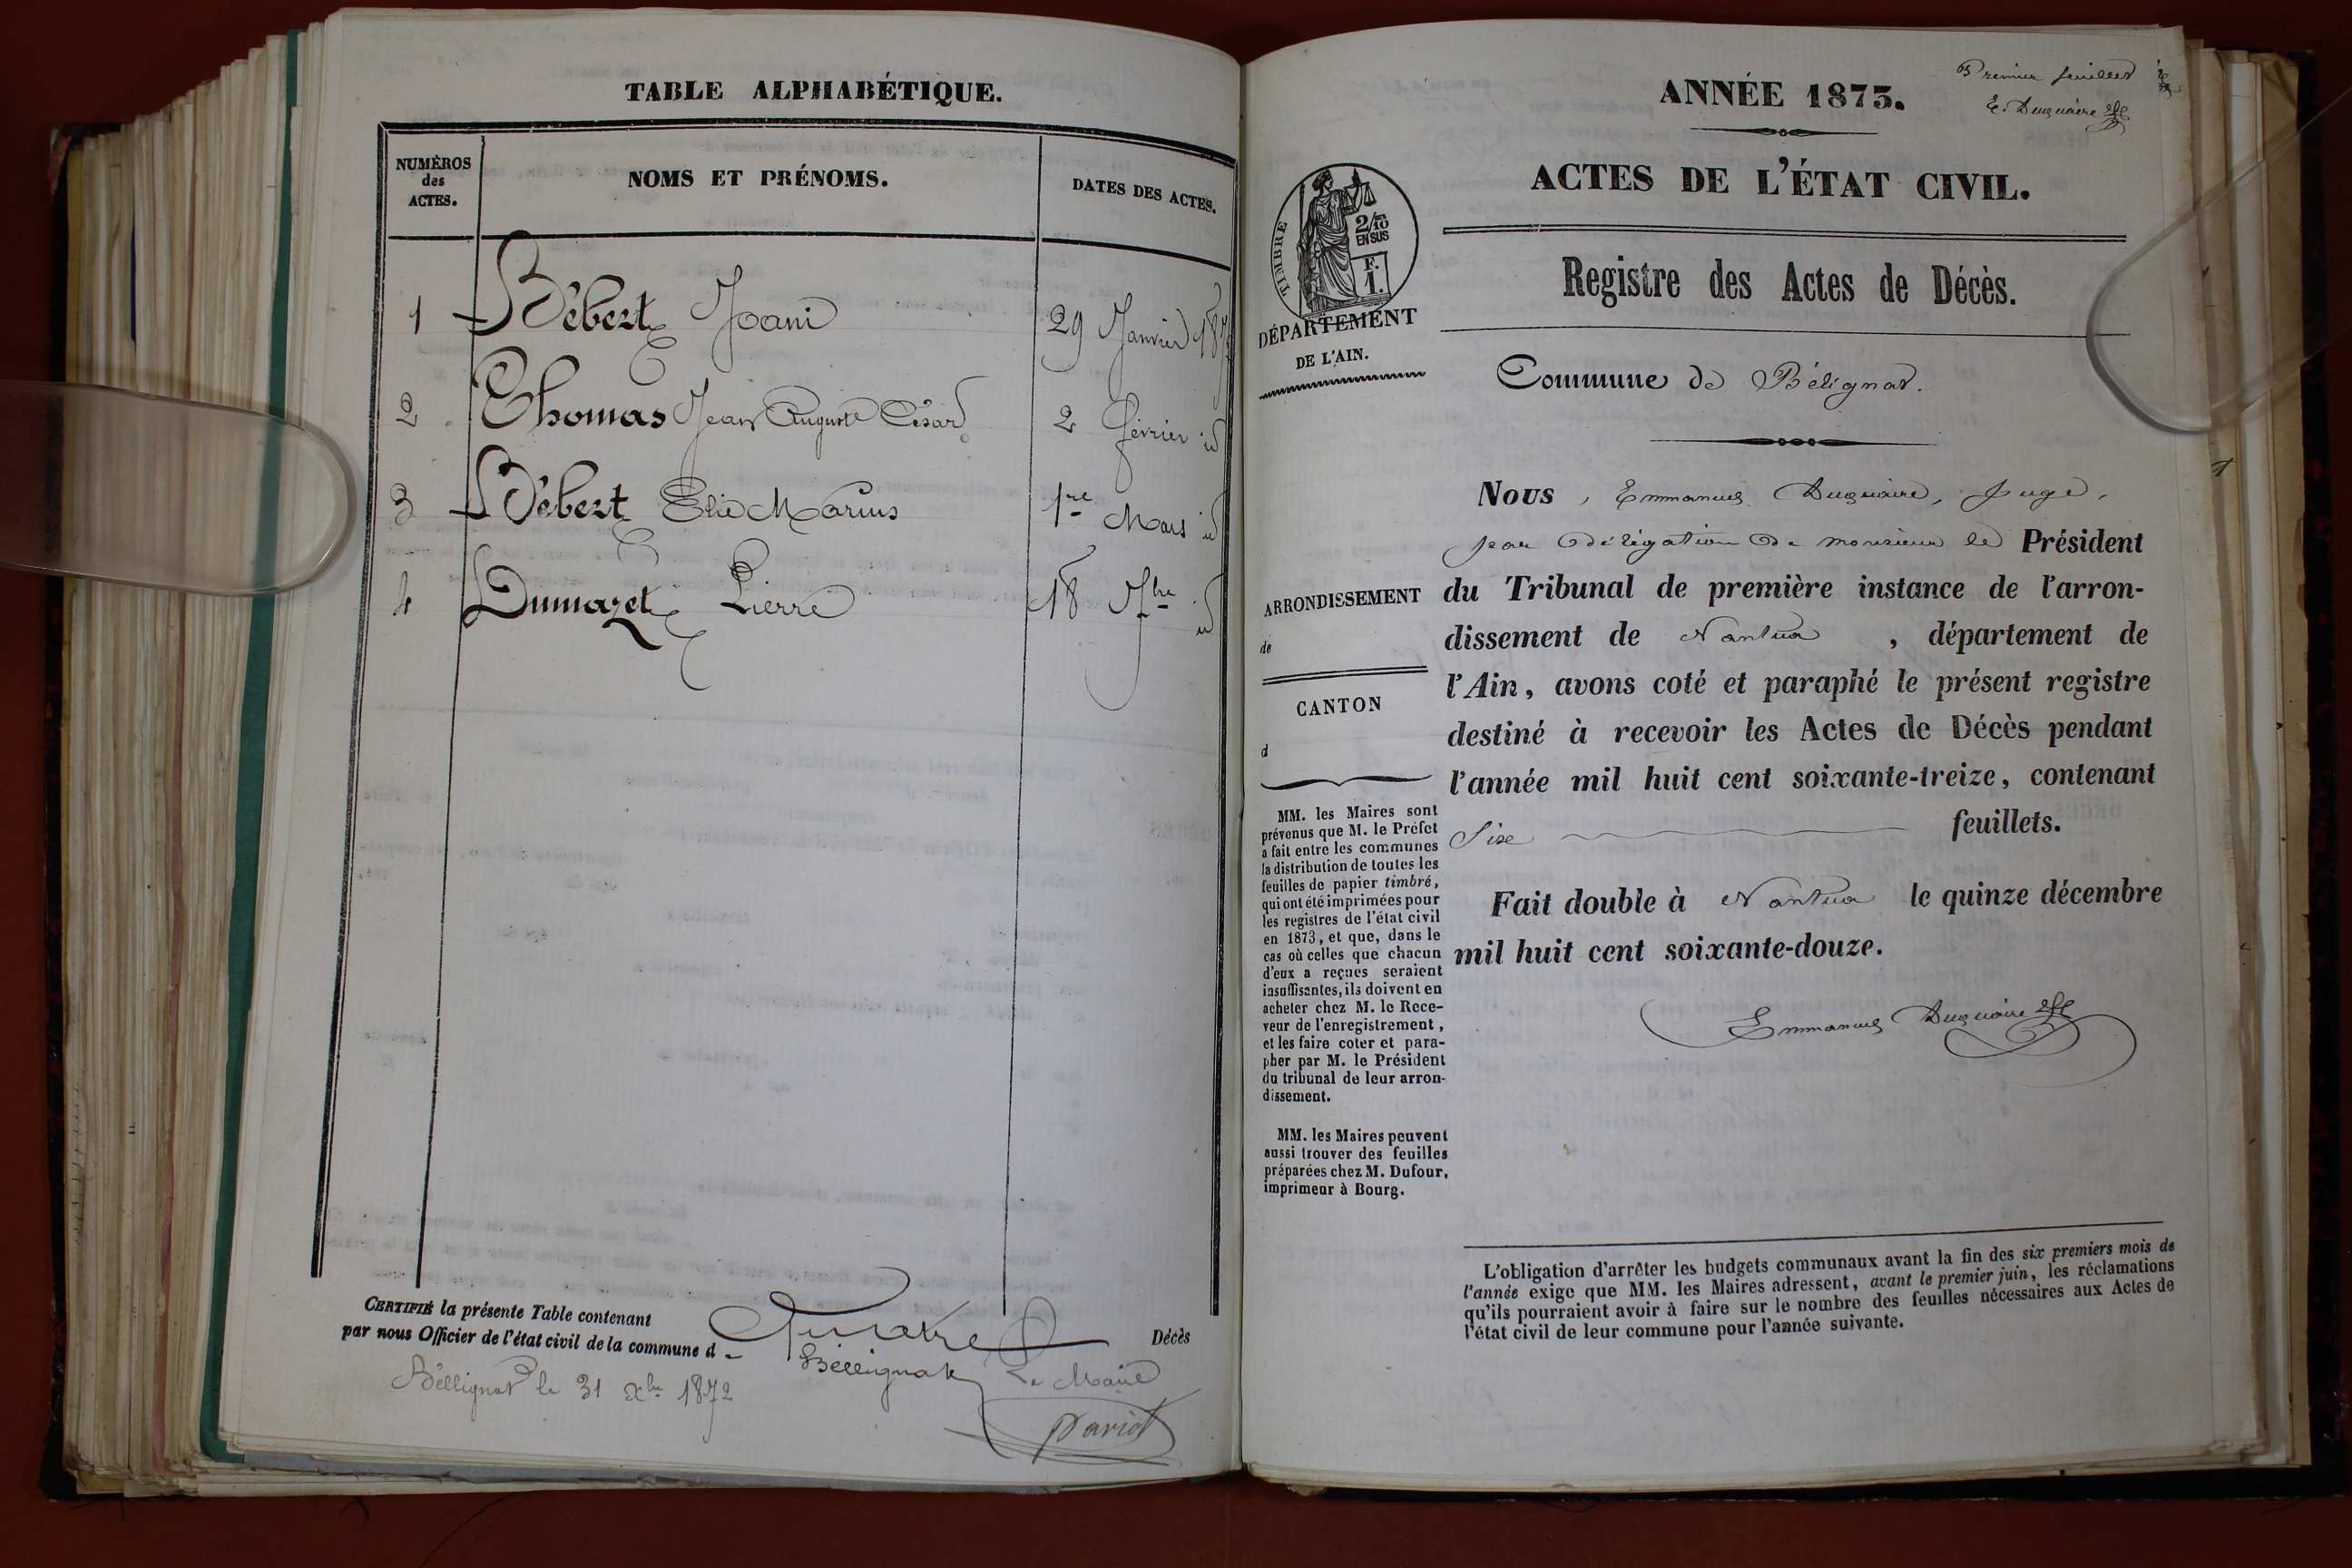 TABLE ALPHABÉTIQUE.
NUMÉROS
des
ACTES.
NOMS ET PRÉNOMS.
DATES DES ACTES.
1 Bébert Joani 29 Janvier 187
2 Thomas Jean Auguste César 2 février id
3 Bébert Elie Marius 1re Mars id
4 Dumazet Pierre 18 7bre id
CERTIFIÉ la présente Table contenant quatre Décès
par nous Officier de l'état civil de la commune d e Béllignat
Béllignat le 31 Xbre 1872
Le Maire
Dariot
Premier feuillet
E. Duquaire
ANNÉE 1873.
ACTES DE L'ÉTAT CIVIL.
TIMBRE
2/10
EN SUS
F.
1.
DÉPARTEMENT
DE L'AIN.
Registre des Actes de Décès.
Commune de Bélignat.
ARRONDISSEMENT
de
CANTON
d
MM. les Maires sont
prévenus que M. le Préfet
a fait entre les communes
la distribution de toutes les
feuilles de papier timbré,
qui ont été imprimées pour
les registres de l'état civil
en 1873, et que, dans le
cas où celles que chacun
d'eux a reçues seraient
insuffisantes, ils doivent en
acheter chez M. le Rece-
veur de l'enregistrement,
et les faire coter et para-
pher par M. le Président
du tribunal de leur arron-
dissement.
MM. les Maires peuvent
aussi trouver des feuilles
préparées chez M. Dufour,
imprimeur à Bourg.
Nous, Emmanuel Duquaire, Juge,
par délégation de monsieur le Président
du Tribunal de première instance de l'arron-
dissement de Nantua, département de
l'Ain, avons coté et paraphé le présent registre
destiné à recevoir les Actes de Décès pendant
l'année mil huit cent soixante-treize, contenant
Six feuillets.
Fait double à Nantua le quinze décembre
mil huit cent soixante-douze.
Emmanuel Duquaire
L'obligation d'arrêter les budgets communaux avant la fin des six premiers mois de
l'année exige que MM. les Maires adressent, avant le premier juin, les réclamations
qu'ils pourraient avoir à faire sur le nombre des feuilles nécessaires aux Actes de
l'état civil de leur commune pour l'année suivante.